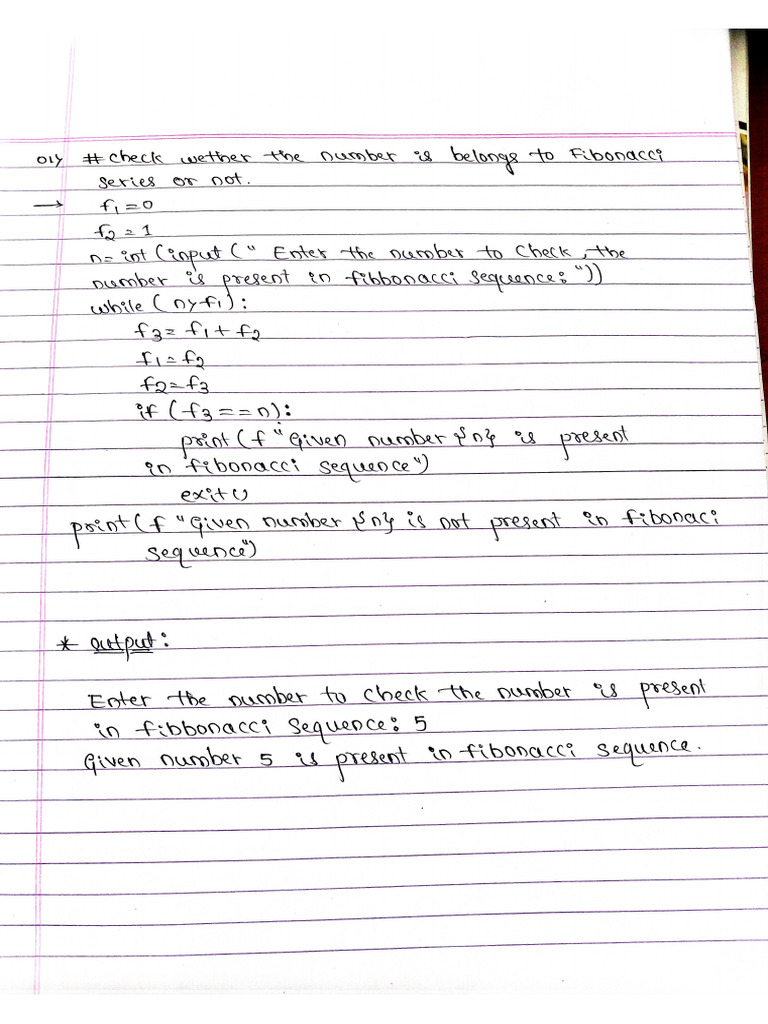 01) # Check wether the number is belongs to Fibonacci
series or not.
→ f₁=0
f₂=1
n=int(input(" Enter the number to check, the
number is present in fibbonacci sequence: "))
while(n>f₁):
f₃= f₁+f₂
f₁=f₂
f₂=f₃
if (f₃==n):
print(f"Given number {n} is present
in fibonacci sequence")
exit()
print(f "Given number {n} is not present in fibonaci
sequence")
* output:
Enter the number to check the number is present
in fibbonacci sequence: 5
Given number 5 is present in fibonacci sequence.